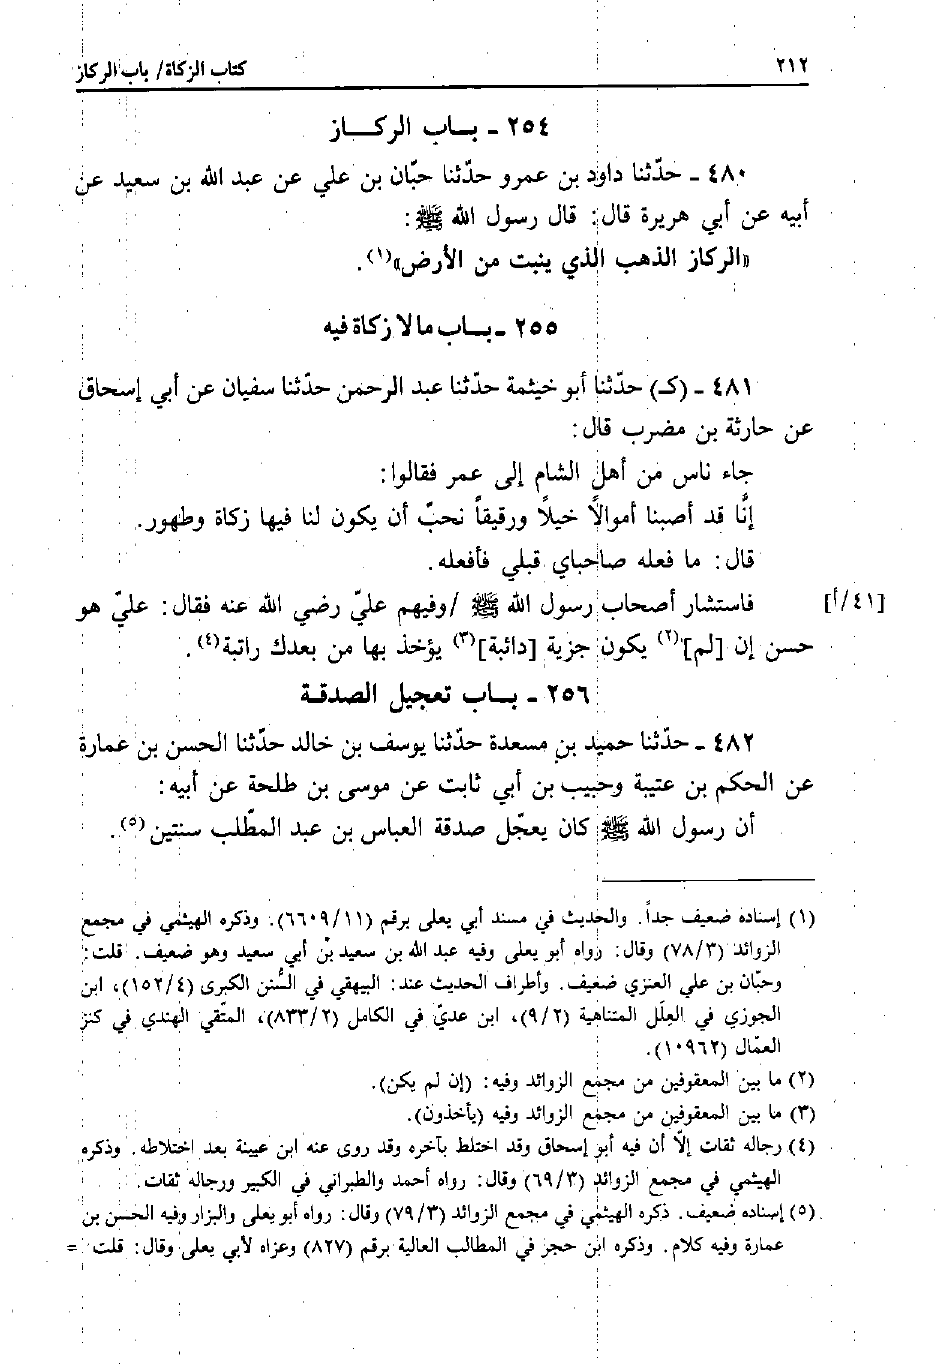 ٢١٢
كتاب الزكاة/ باب الركاز
٢٥٤ - بـاب الركـاز
٤٨٠ - حدّثنا داود بن عمرو حدّثنا حبّان بن علي عن عبد الله بن سعيد عن
أبيه عن أبي هريرة قال: قال رسول الله ﷺ:
«الركاز الذهب الذي ينبت من الأرض»(١).
٢٥٥ - بـاب ما لا زكاة فيه
٤٨١ - (كـ) حدّثنا أبو خيثمة حدّثنا عبد الرحمن حدّثنا سفيان عن أبي إسحاق
عن حارثة بن مضرب قال:
جاء ناس من أهل الشام إلى عمر فقالوا:
إنَّا قد أصبنا أموالاً خيلاً ورقيقاً نحبّ أن يكون لنا فيها زكاة وطهور.
قال: ما فعله صاحباي قبلي فأفعله.
[٤١/أ] فاستشار أصحاب رسول الله ﷺ /وفيهم عليّ رضي الله عنه فقال: عليّ هو
حسن إن [لم](٢) يكون جزية [دائبة](٣) يؤخذ بها من بعدك راتبة(٤).
٢٥٦ - بـاب تعجيل الصدقـة
٤٨٢ - حدّثنا حميد بن مسعدة حدّثنا يوسف بن خالد حدّثنا الحسن بن عمارة
عن الحكم بن عتيبة وحبيب بن أبي ثابت عن موسى بن طلحة عن أبيه:
أن رسول الله ﷺ كان يعجّل صدقة العباس بن عبد المطّلب سنتين(٥).
(١) إسناده ضعيف جداً. والحديث في مسند أبي يعلى برقم (٦٦٠٩/١١). وذكره الهيثمي في مجمع
الزوائد (٧٨/٣) وقال: رواه أبو يعلى وفيه عبد الله بن سعيد بن أبي سعيد وهو ضعيف. قلت:
وحبّان بن علي العنزي ضعيف. وأطراف الحديث عند: البيهقي في السُّنن الكبرى (١٥٢/٤)، ابن
الجوزي في العِلَل المتناهية (٩/٢)، ابن عديّ في الكامل (٨٣٣/٢)، المتّقي الهندي في كنز
العمّال (١٠٩٦٢).
(٢) ما بين المعقوفين من مجمع الزوائد وفيه: (إن لم يكن).
(٣) ما بين المعقوفين من مجمع الزوائد وفيه (يأخذون).
(٤) رجاله ثقات إلاّ أن فيه أبو إسحاق وقد اختلط بآخره وقد روى عنه ابن عيينة بعد اختلاطه. وذكره
الهيثمي في مجمع الزوائد (٦٩/٣) وقال: رواه أحمد والطبراني في الكبير ورجاله ثقات.
(٥) إسناده ضعيف. ذكره الهيثمي في مجمع الزوائد (٧٩/٣) وقال: رواه أبو يعلى والبزار وفيه الحسن بن
عمارة وفيه كلام. وذكره ابن حجر في المطالب العالية برقم (٨٢٧) وعزاه لأبي يعلى وقال: قلت =